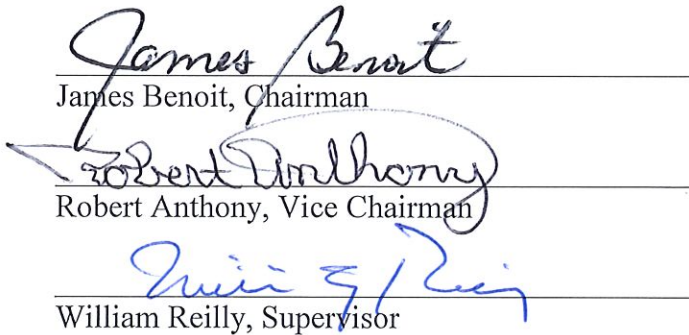 James Benoit
James Benoit, Chairman
Robert Anthony
Robert Anthony, Vice Chairman
William Reilly, Supervisor